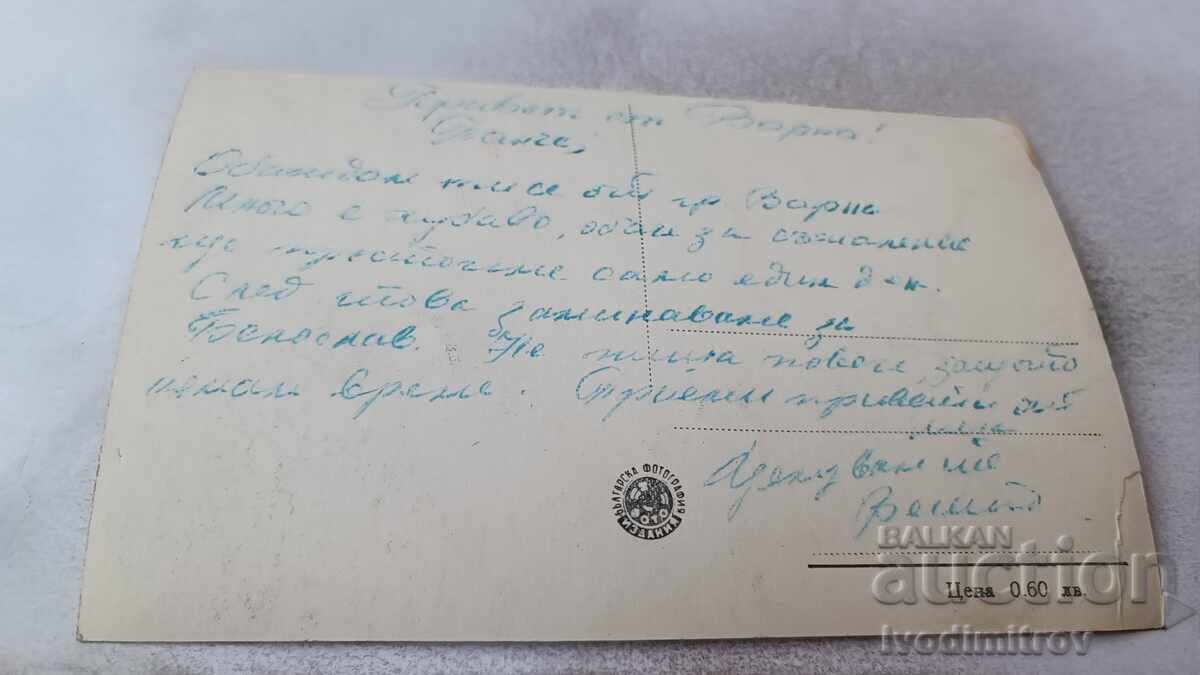 Привет от Варна!
Данче,
Обаждам ти се от гр Варна
Много е хубаво, обаче за съжаление
ще престоиме само един ден.
След това заминаваме за
Белослав. Не пиша повече, защото
немам време. Приеми привети от
мене
Целувам те
БЪЛГАРСКА ФОТОГРАФИЯ
ФОТО
ИЗДАНИЕ
Цена 0.60 лв.
BALKAN
auction
Ivodimitrov